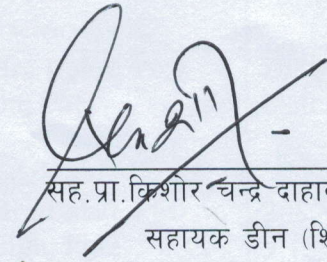 सह.प्रा.किशोर चन्द्र दाहा
सहायक डीन (शि